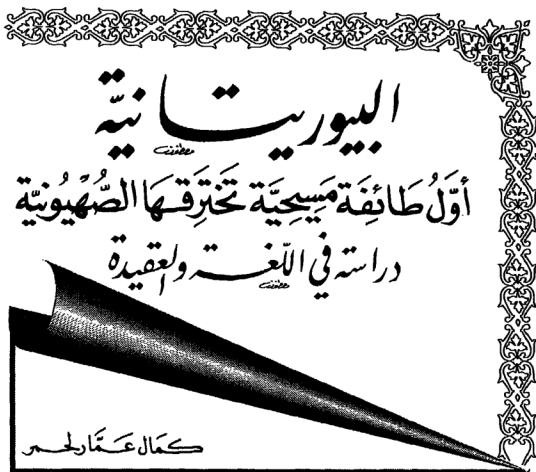 البيوريتانية
أوّلُ طَائِفَة مَسِيحِيَّة تَختَرِقهَا الصُّهْيُونيّة
دراسة في اللّغة والعقيدة
كمَال عَمَّار لحمر